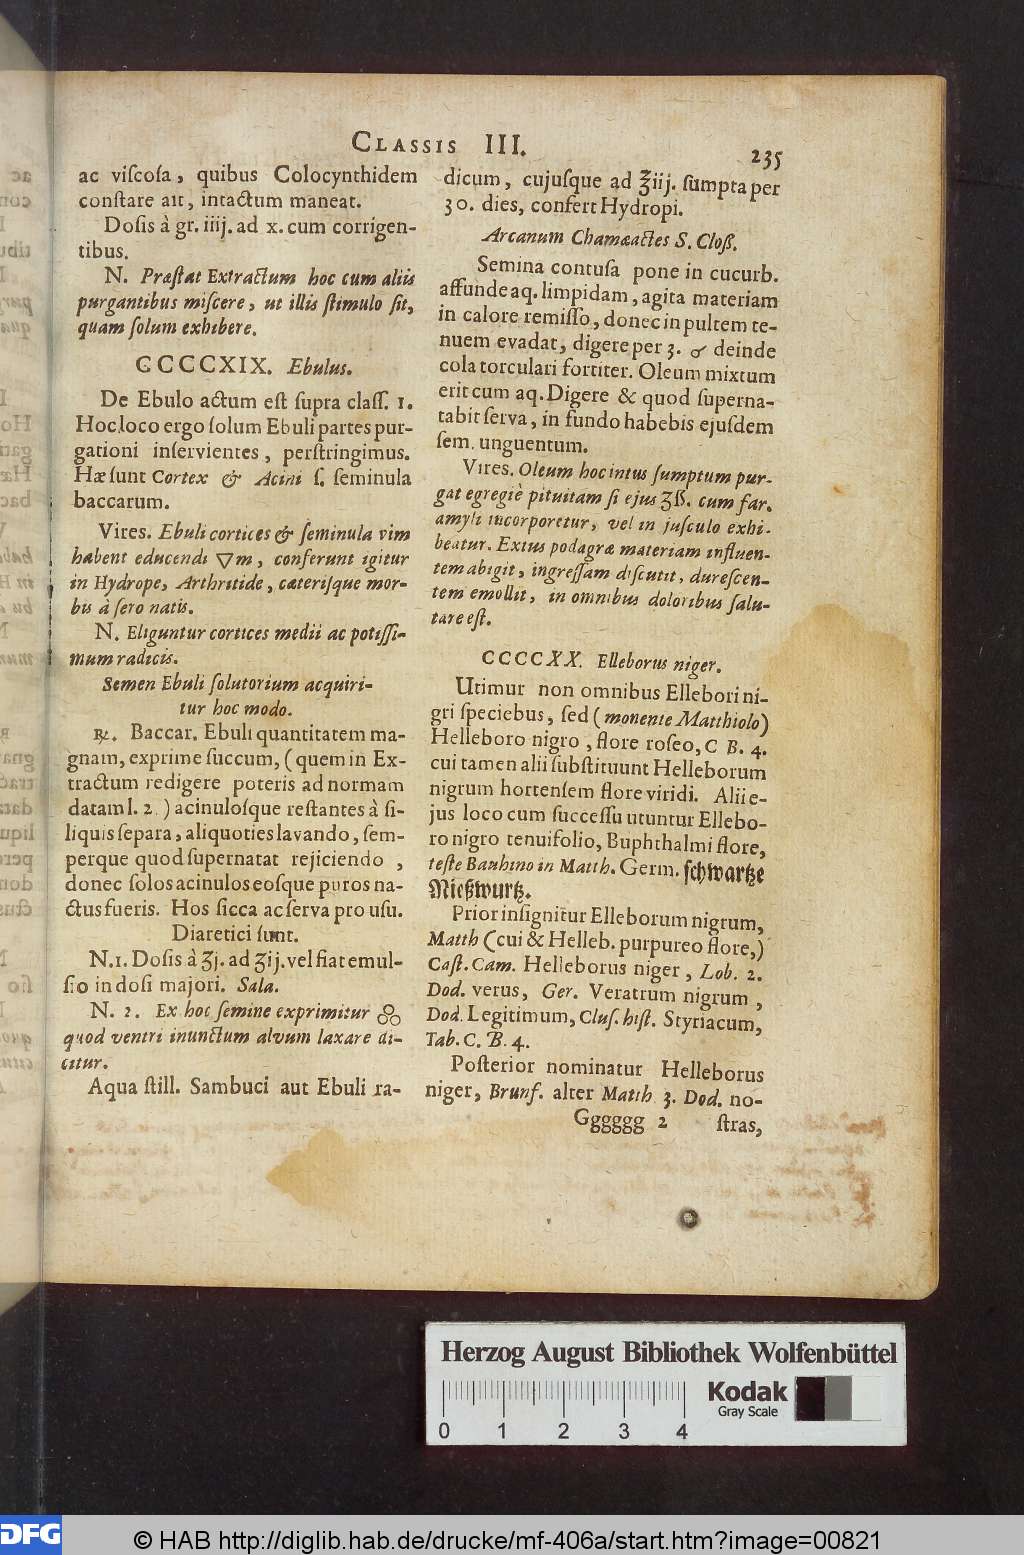 CLASSIS III.
235
ac viſcoſa, quibus Colocynthidem
conſtare ait, intactum maneat.
Doſis à gr. iiij. ad x. cum corrigen-
tibus.
N. Præſtat Extractum hoc cum aliis
purgantibus miſcere, ut illis ſtimulo ſit,
quam ſolum exhibere.
CCCCXIX. Ebulus.
De Ebulo actum eſt ſupra claſſ. 1.
Hoc loco ergo ſolum Ebuli partes pur-
gationi inſervientes, perſtringimus.
Hæ ſunt Cortex & Acini ſ. ſeminula
baccarum.
Vires. Ebuli cortices & ſeminula vim
habent educendi 🜄m, conferunt igitur
in Hydrope, Arthritide, cæterisque mor-
bis à ſero natis.
N. Eliguntur cortices medii ac potiſſi-
mum radicis.
Semen Ebuli ſolutorium acquiri-
tur hoc modo.
℞. Baccar. Ebuli quantitatem ma-
gnam, exprime ſuccum, (quem in Ex-
tractum redigere poteris ad normam
datam l. 2.) acinuloſque reſtantes à ſi-
liquis ſepara, aliquoties lavando, ſem-
perque quod ſupernatat rejiciendo,
donec ſolos acinulos eoſque puros na-
ctus fueris. Hos ſicca ac ſerva pro uſu.
Diaretici ſunt.
N.1. Doſis à ʒj. ad ʒij. vel fiat emul-
ſio in doſi majori. Sala.
N. 2. Ex hoc ſemine exprimitur ഃ
quod ventri inunctum alvum laxare di-
citur.
Aqua ſtill. Sambuci aut Ebuli ra-
dicum, cujuſque ad ℥iij. ſumpta per
30. dies, confert Hydropi.
Arcanum Chamæactes S. Cloß.
Semina contuſa pone in cucurb.
affunde aq. limpidam, agita materiam
in calore remiſſo, donec in pultem te-
nuem evadat, digere per 3. ♂ deinde
cola torculari fortiter. Oleum mixtum
erit cum aq. Digere & quod ſuperna-
tabit ſerva, in fundo habebis ejuſdem
ſem. unguentum.
Vires. Oleum hoc intus ſumptum pur-
gat egregiè pituitam ſi ejus ʒß. cum far.
amyli incorporetur, vel in juſculo exhi-
beatur. Extus podagræ materiam influen-
tem abigit, ingreſſam diſcutit, dureſcen-
tem emollit, in omnibus doloribus ſalu-
tare eſt.
CCCCXX. Elleborus niger.
Utimur non omnibus Ellebori ni-
gri ſpeciebus, ſed (monente Matthiolo)
Helleboro nigro, flore roſeo, C. B. 4.
cui tamen alii ſubſtituunt Helleborum
nigrum hortenſem flore viridi. Alii e-
jus loco cum ſucceſſu utuntur Ellebo-
ro nigro tenuifolio, Buphthalmi flore,
teſte Bauhino in Matth. Germ. ſchwartze
Nießwurtz.
Prior inſignitur Elleborum nigrum,
Matth (cui & Helleb. purpureo flore,)
Caſt. Cam. Helleborus niger, Lob. 2.
Dod. verus, Ger. Veratrum nigrum,
Dod. Legitimum, Cluſ. hiſt. Styriacum,
Tab. C. B. 4.
Poſterior nominatur Helleborus
niger, Brunf. alter Matth 3. Dod. no-
Gggggg 2 ſtras,
Herzog August Bibliothek Wolfenbüttel
Kodak
Gray Scale
0 1 2 3 4
DFG © HAB http://diglib.hab.de/drucke/mf-406a/start.htm?image=00821